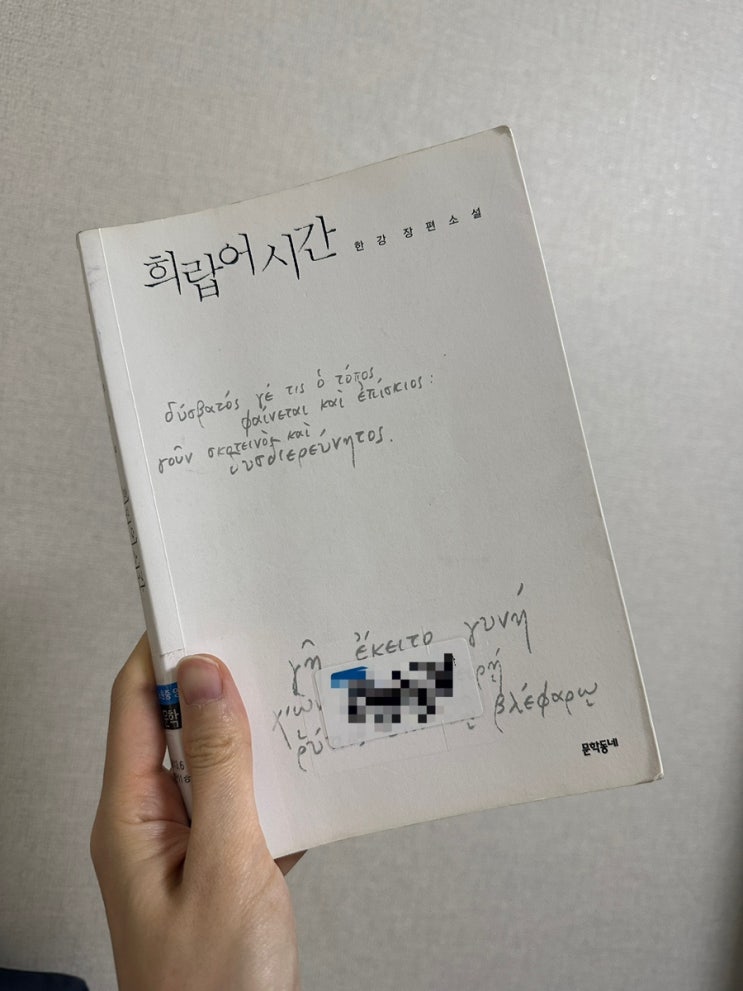 희랍어 시간
한강 장편소설
δύσβατός γέ τις ὁ τόπος
φαίνεται καὶ ἐπίσκιος:
γοῦν σκοτεινὸς καὶ
δυσδιερεύνητος.
γῇ ἔκειτο γυνή
βλέφαρῳ
문학동네
문학